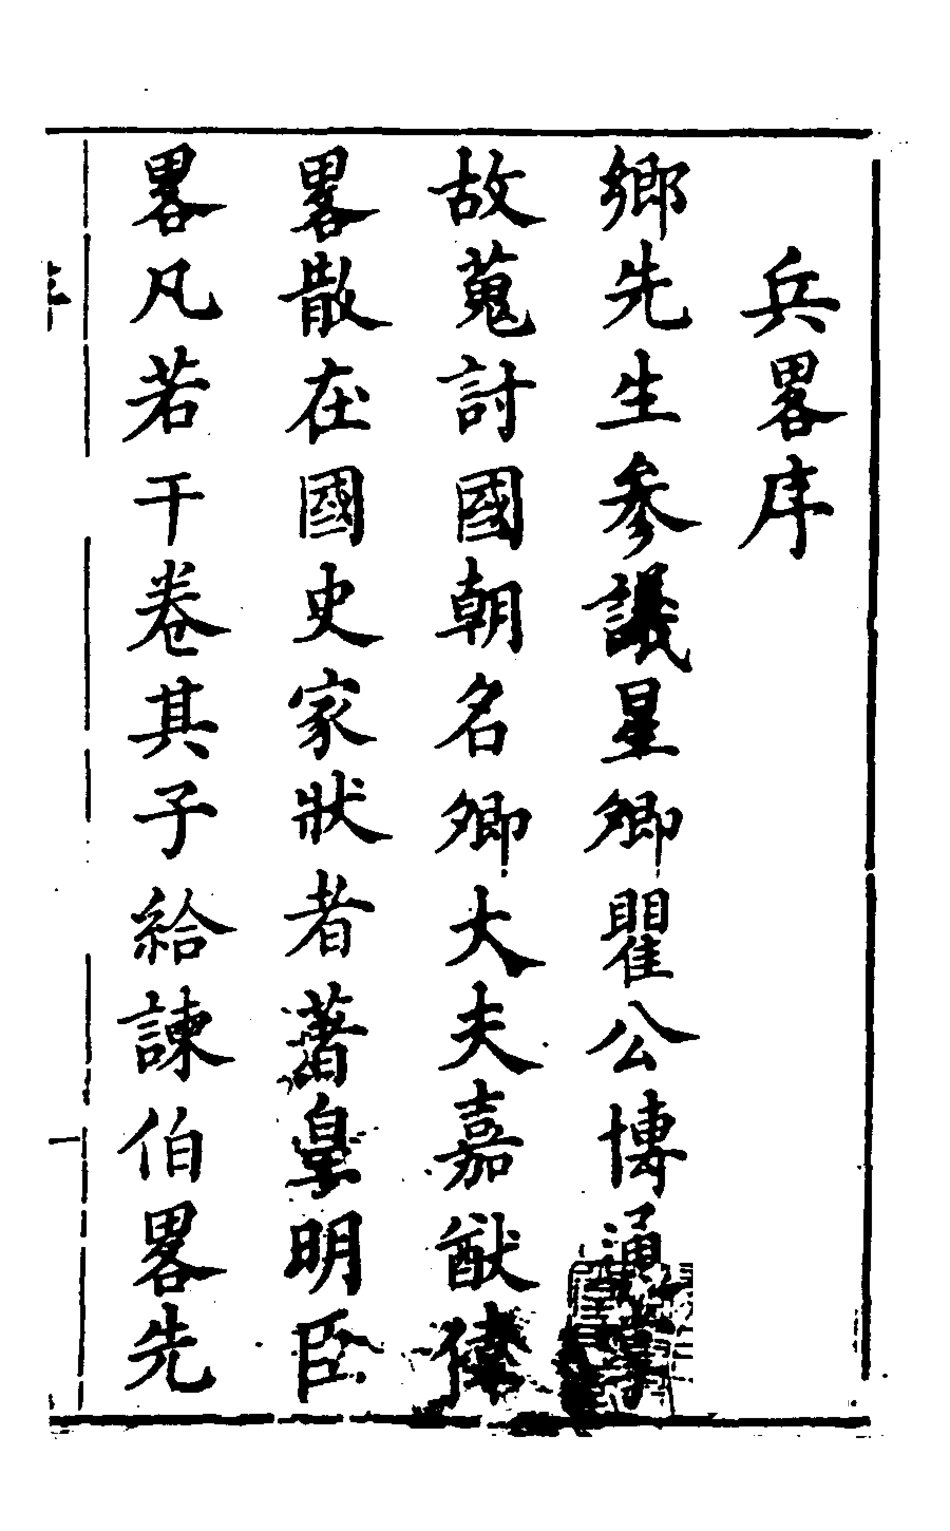 兵畧序
鄉先生參議星卿瞿公博通掌
故蒐討國朝名卿大夫嘉猷偉
畧散在國史家狀者著皇明臣
畧凡若干卷其子給諫伯畧先
一